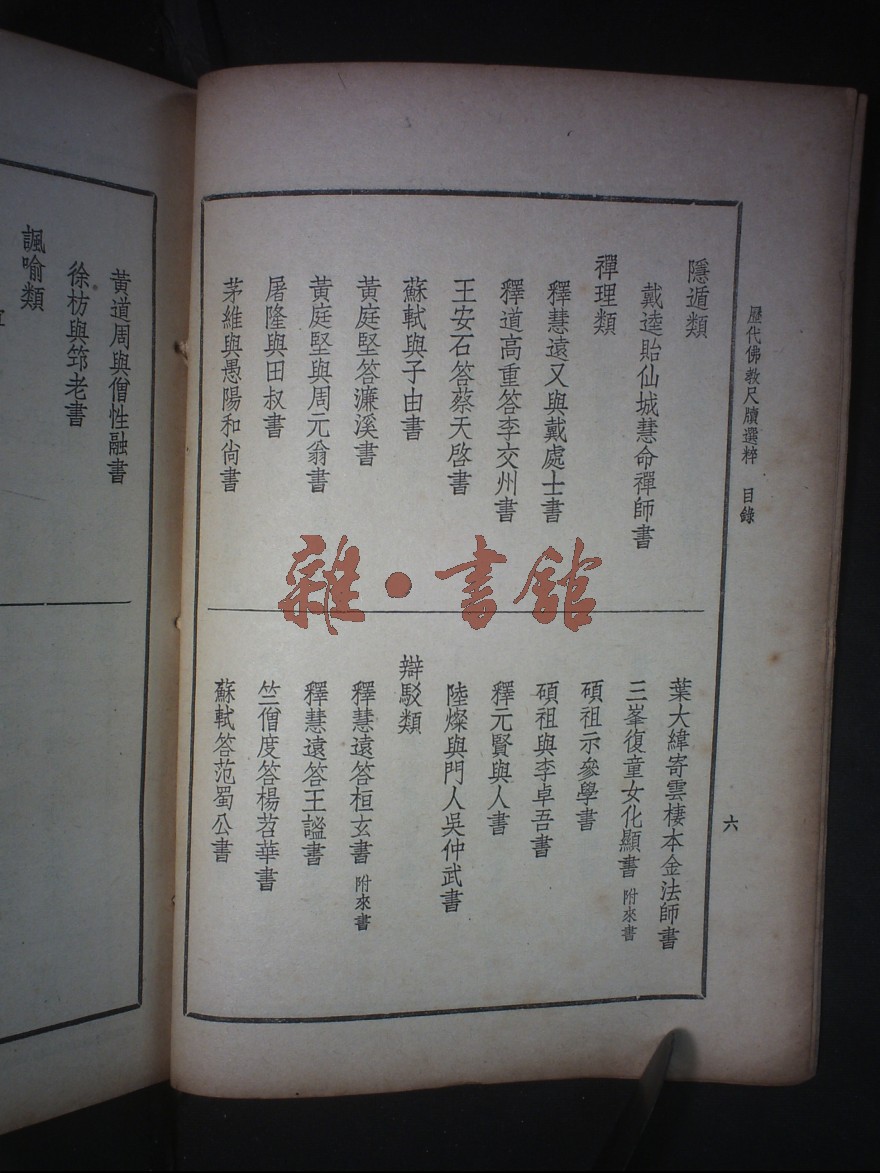 歷代佛教尺牘選粹 目錄
六
隱遁類
戴逵貽仙城慧命禪師書
禪理類
釋慧遠又與戴處士書
釋道高重答李交州書
王安石答蔡天啓書
蘇軾與子由書
黃庭堅答濂溪書
黃庭堅與周元翁書
屠隆與田叔書
茅維與愚陽和尙書
葉大緯寄雲棲本金法師書
三峯復童女化顯書 附來書
碩祖示參學書
碩祖與李卓吾書
釋元賢與人書
陸燦與門人吳仲武書
辯駁類
釋慧遠答桓玄書 附來書
釋慧遠答王謐書
竺僧度答楊苕華書
蘇軾答范蜀公書
黃道周與僧性融書
徐枋與筇老書
諷喻類
雜·書館